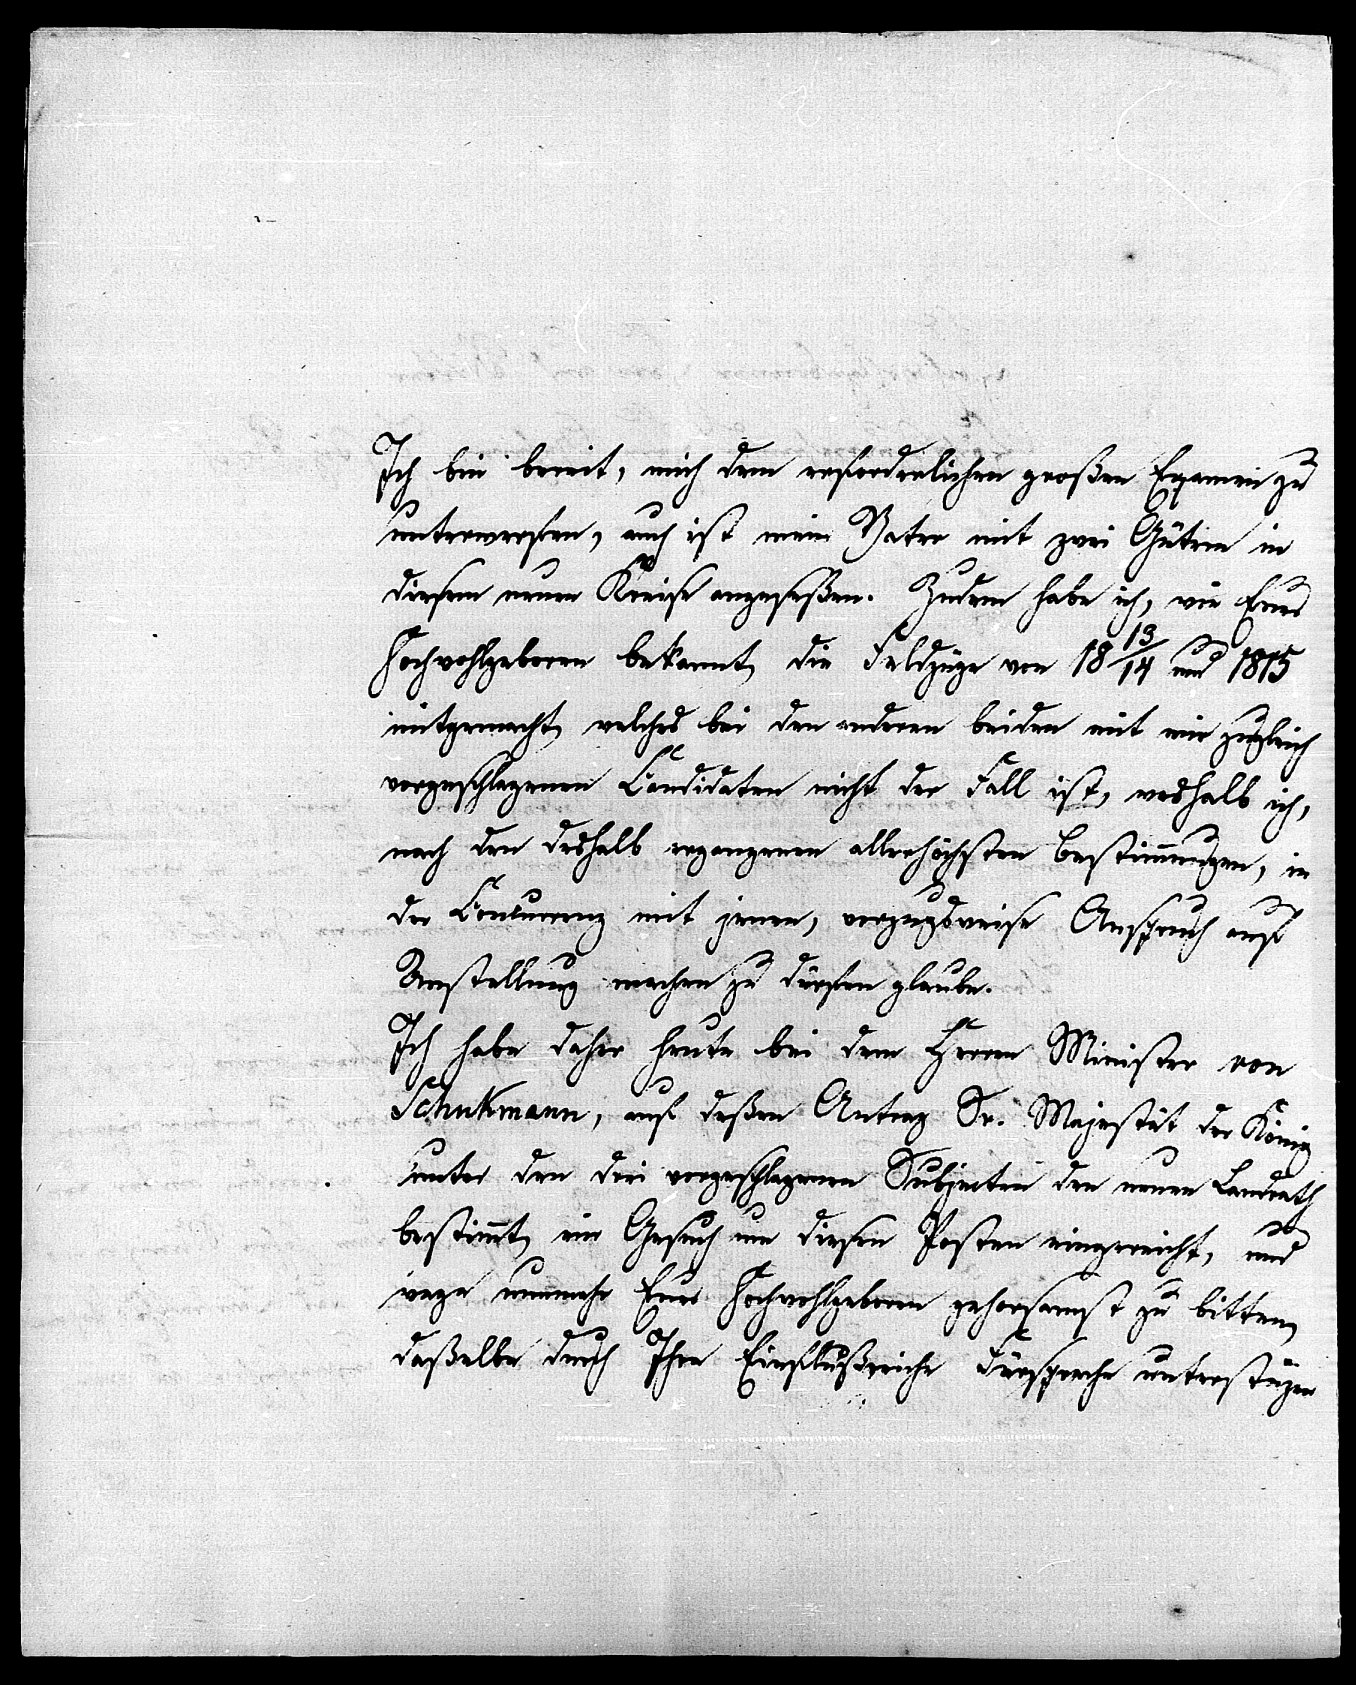 Ich bin bereit, mich dem erforderlichen großen Examen zu
unterwerfen, auch ist mein Vater mit zwei Gütern in
diesem neuen Kreise angeseßen. Zudem habe ich, wie Euer
Hochwohlgeboren bekannt, die Feldzüge von 18 13/14 und 1815
mitgemacht, welches bei den anderen beiden mit mir zugleich
vorgeschlagenen Candidaten nicht der Fall ist, weshalb ich,
nach den deshalb ergangenen allerhöchsten Bestimungen, in
der Concurrenz mit jenen, vorzugsweise Anspruch auf
Anstellung machen zu dürfen glaube.
Ich habe daher heute bei dem Herrn Minister von
Schukmann, auf deßen Antrag Se. Majestät der König
unter den drei vorgeschlagenen Subjecten den neuen Landrath
bestimt, ein Gesuch um diesen Posten eingereicht, und
wage nunmehr Euer Hochwohlgeboren gehorsamst zu bitten,
daßelbe durch Ihre Einflußreiche Fürsprache unterstüzen